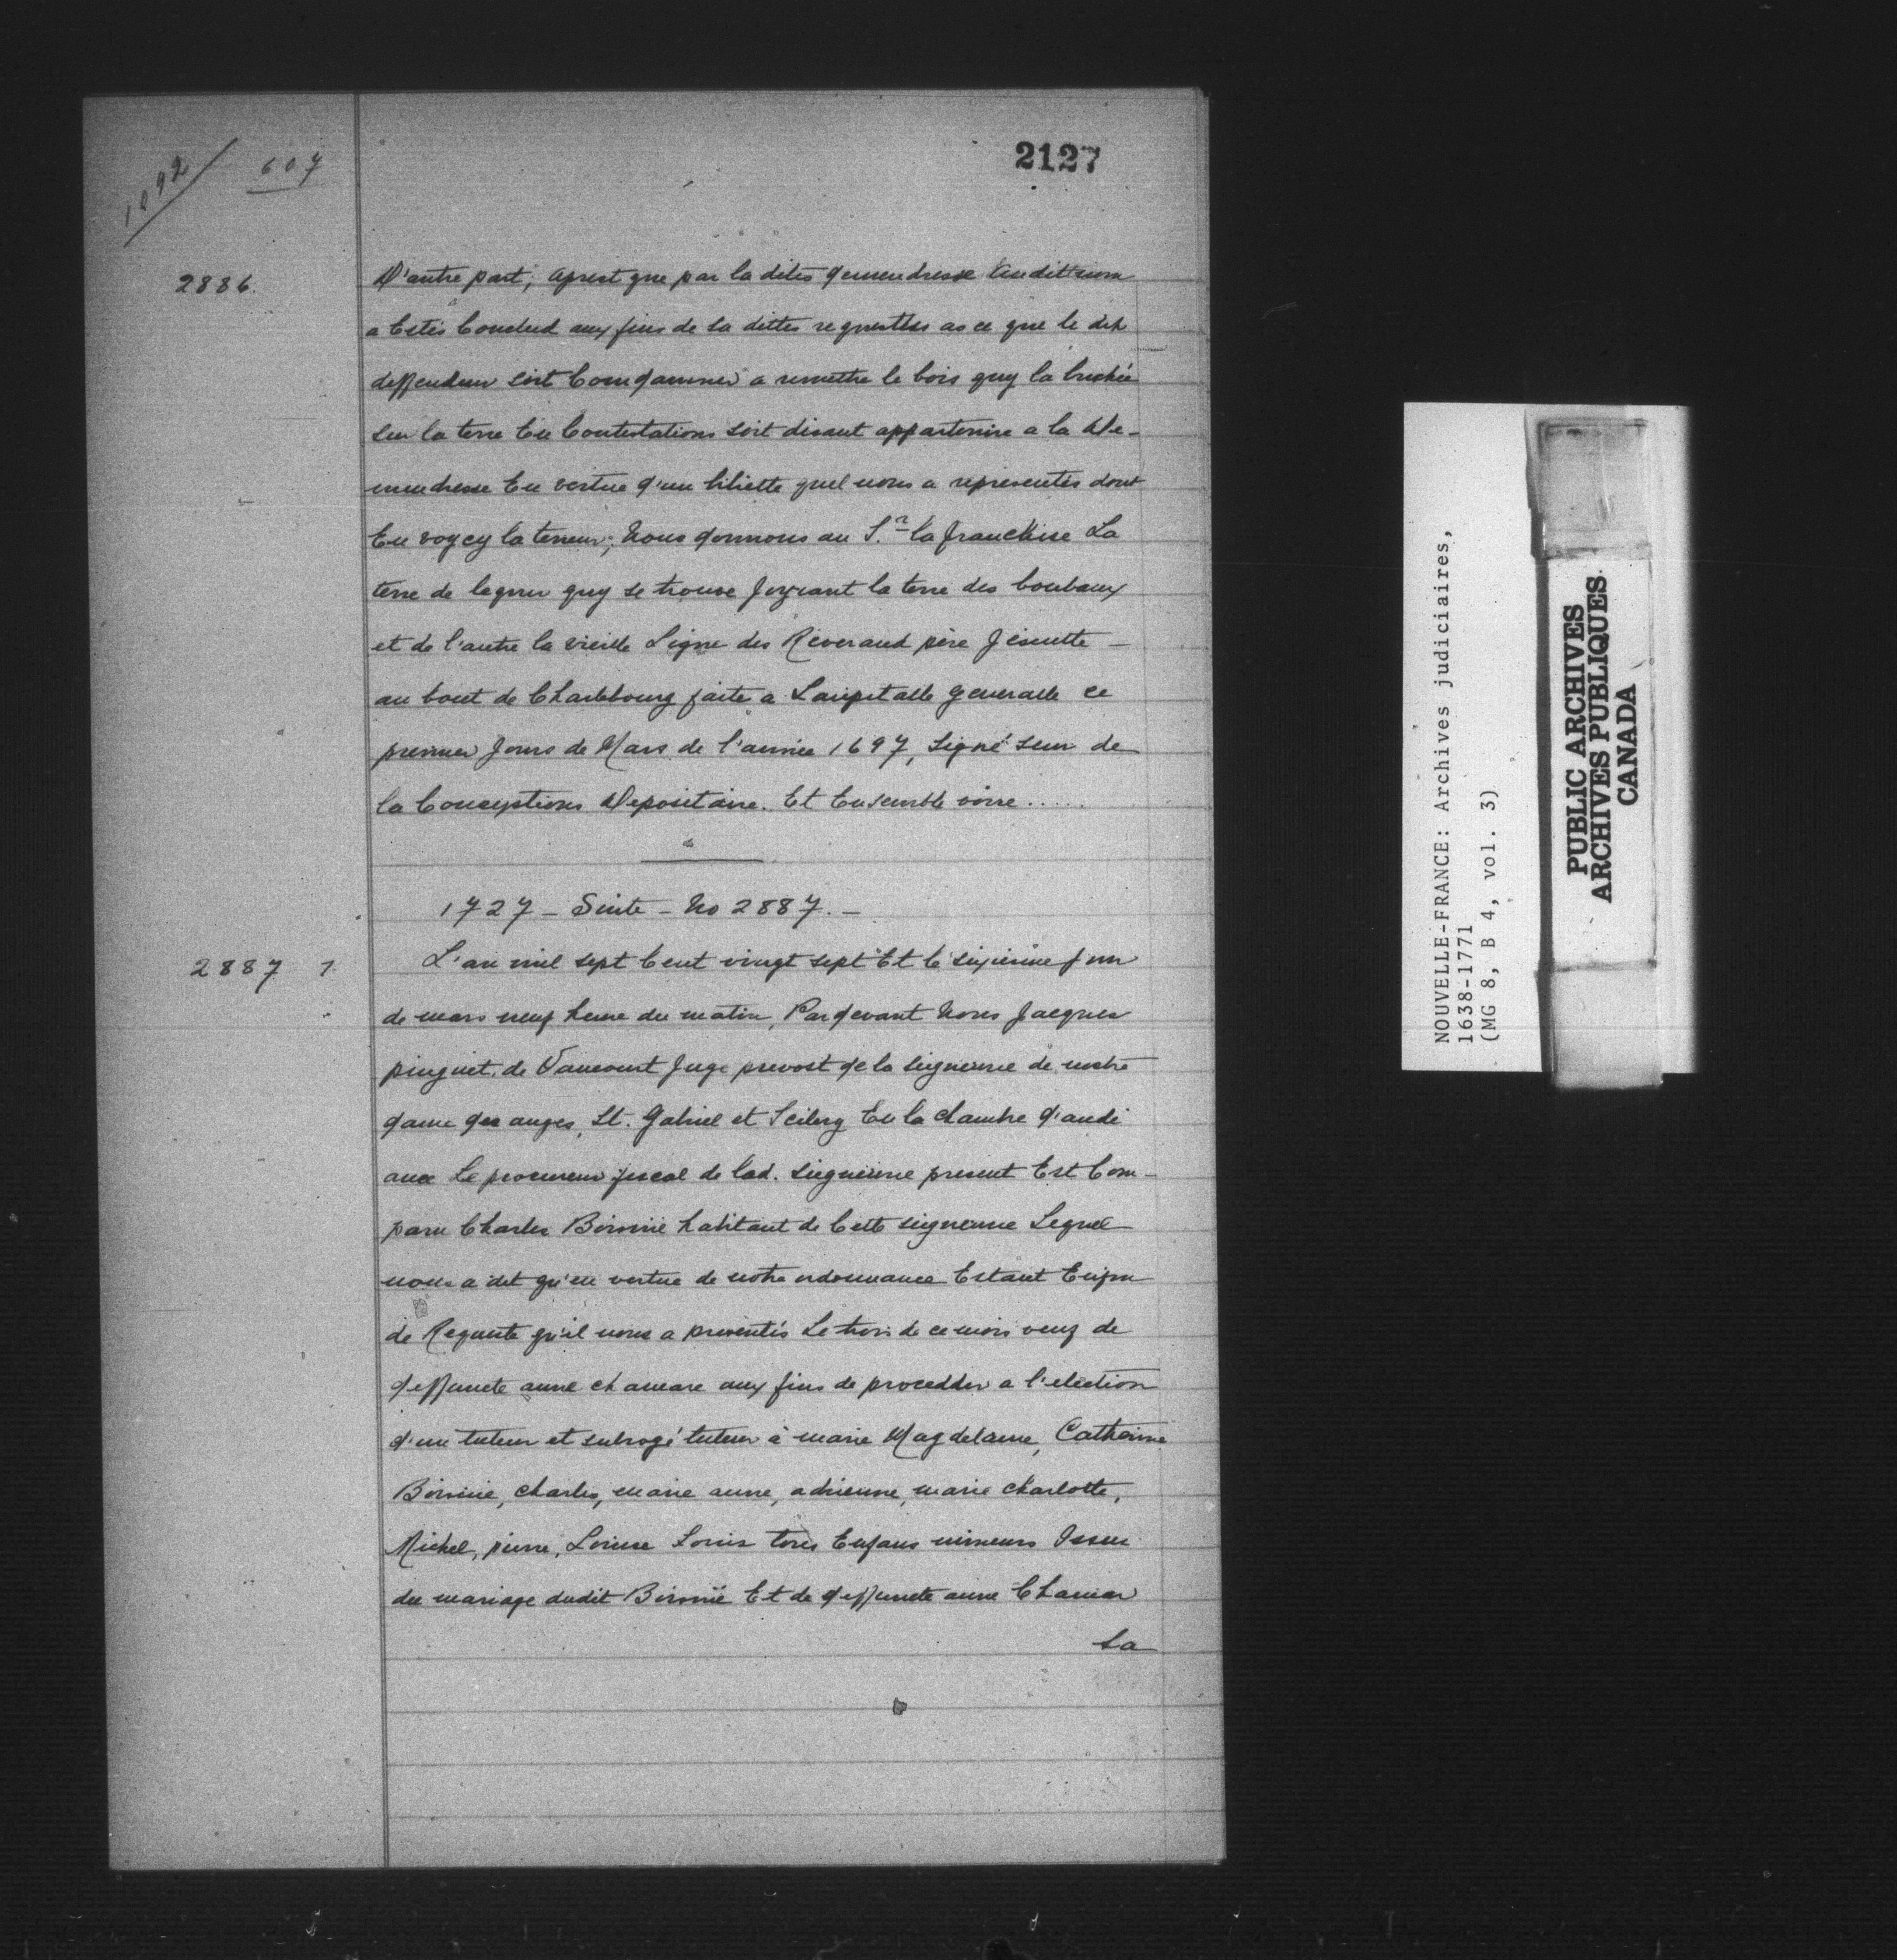 2127
1092/ 607
2886. D'autre part; aprest que par la dites demendresse Audit nom
a Estés Conclud aux fins de la dittes requestes as ce que le dit
deffendeur soit Comdamner a remettre le bois quy la buchée
sur la terre En Contestations soit disant appartenire a la De-
mendresse En vertue d'un biliette quel nous a representés dont
En voycy la teneur; Nous donnons au S.r la franchise La
terre de laquu quy se trouve Joygnant la terre des
et de l'autre la vieille Ligne des Reverand père Jésuitte -
au bout de Charlebourg faite a Laupitalle generalle ce
premier Jours de Mars de l'année 1697, Signé seur de
la Conceptions Depositaire. Et Ensemble voire.....
1727 - Suite - No 2887. -
2887 1 L'an mil sept Cent vingt sept Et le sixieme Jour
de mars neuf heure du matin, Pardevant Nous Jacques
pinguet de Vaucourt Juge prevost de la seigneurie de nostre
dame des anges, St. Gabriel et Scilery En la chambre d'audi
ance Le procureur fiscal de lad. seigneurie present Est Com-
paru Charles Boismé habitant de Cette seigneurie Lequel
nous a dit qu'en vertue de notre ordonnance Estant Enjon
de Requeste qu'il nous a presentés Le trois de ce mois veuf de
deffuncte anne chamare aux fins de procedder a l'election
d'un tuteur et subrogé tuteur à marie Magdelaine, Catherine
Boismé, charles, marie anne, adrienne, marie charlotte,
Michel, pierre, Louise Louis tous Enfans mineurs Issue
du mariage dudit Boismé Et de deffuncte anne Chamar
La
NOUVELLE-FRANCE: Archives judiciaires,
1638-1771
(MG 8, B 4, vol. 3)
PUBLIC ARCHIVES
ARCHIVES PUBLIQUES
CANADA